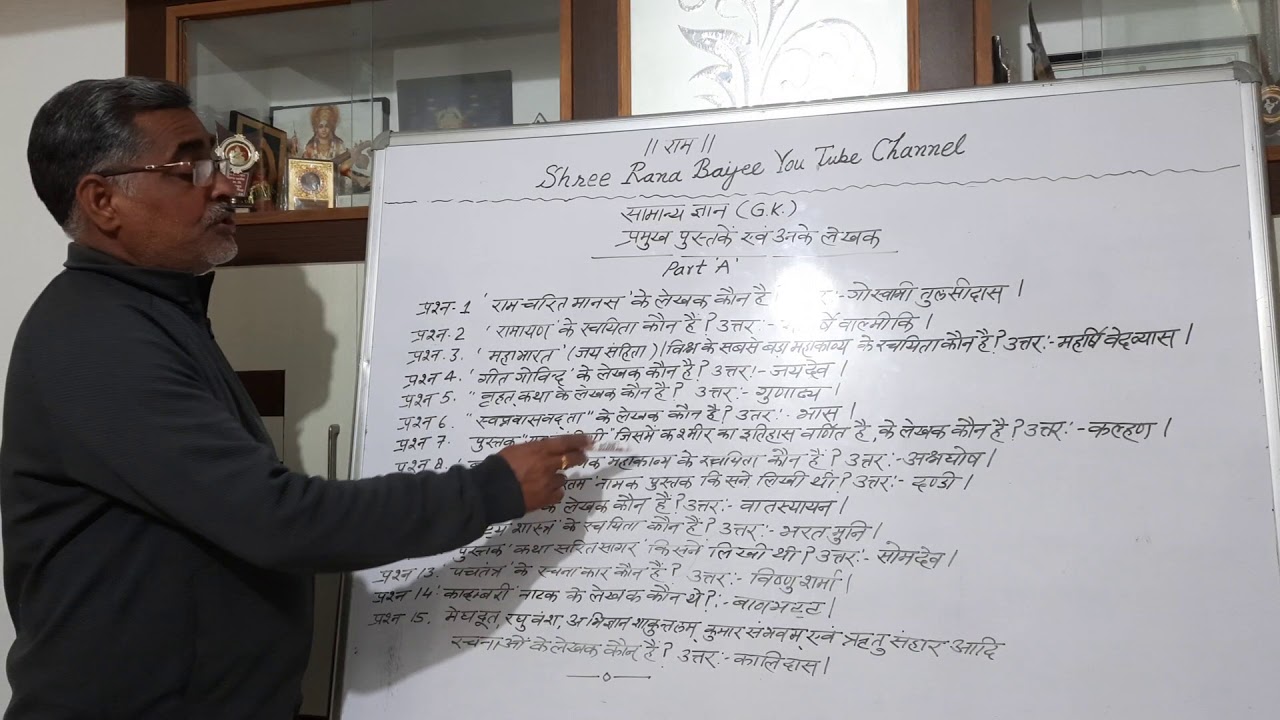 ॥ राम ॥
Shree Rana Baijee You Tube Channel
सामान्य ज्ञान (G.K.)
प्रमुख पुस्तकें एवं उनके लेखक
Part 'A'
प्रश्न-1 'राम चरित मानस' के लेखक कौन है :- गोस्वामी तुलसीदास ।
प्रश्न-2 'रामायण' के रचयिता कौन हैं? उत्तर :- वाल्मीकि ।
प्रश्न. 3. 'महाभारत' (जय संहिता) विश्व के सबसे बड़ा महाकाव्य के रचयिता कौन है? उत्तर:- महर्षि वेदव्यास ।
प्रश्न 4. 'गीत गोविन्द' के लेखक कौन है? उत्तर:- जयदेव ।
प्रश्न 5. "वृहत् कथा के लेखक कौन है? उत्तर:- गुणाढ्य
प्रश्न 6. "स्वप्नवासवदत्ता" के लेखक कौन है? उतर:- भास ।
प्रश्न 7. पुस्तक जिसमें कश्मीर का इतिहास वर्णित है, के लेखक कौन है? उत्तर:- कल्हण ।
प्रश्न 8. महाकाव्य के रचयिता कौन हैं? उत्तर:- अश्वघोष ।
नामक पुस्तक किसने लिखी थी? उत्तर:- दण्डी ।
के लेखक कौन हैं? उत्तर:- वातस्यायन ।
शास्त्र' के रचयिता कौन हैं? उत्तर:- भरत मुनि ।
पुस्तक 'कथा सरित सागर' किसने लिखी थी? उत्तर:- सोमदेव ।
प्रश्न 13. 'पंचतंत्र' के रचनाकार कौन हैं? उत्तर:- विष्णु शर्मा ।
प्रश्न 14. 'कादम्बरी' नाटक के लेखक कौन थे?:- बाणभट्ट ।
प्रश्न 15. मेघदूत, रघुवंश, अभिज्ञान शाकुन्तलम्, कुमार संभवम् एवं ऋतु संहार आदि
रचनाओं के लेखक कौन हैं? उत्तर:- कालिदास ।